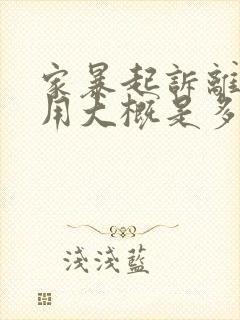 家暴起訴離
用大概是多
淺淺藍